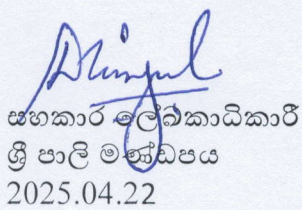 සහකාර ලේඛකාධිකාරී
ශ්‍රී පාලි මණ්ඩපය
2025.04.22